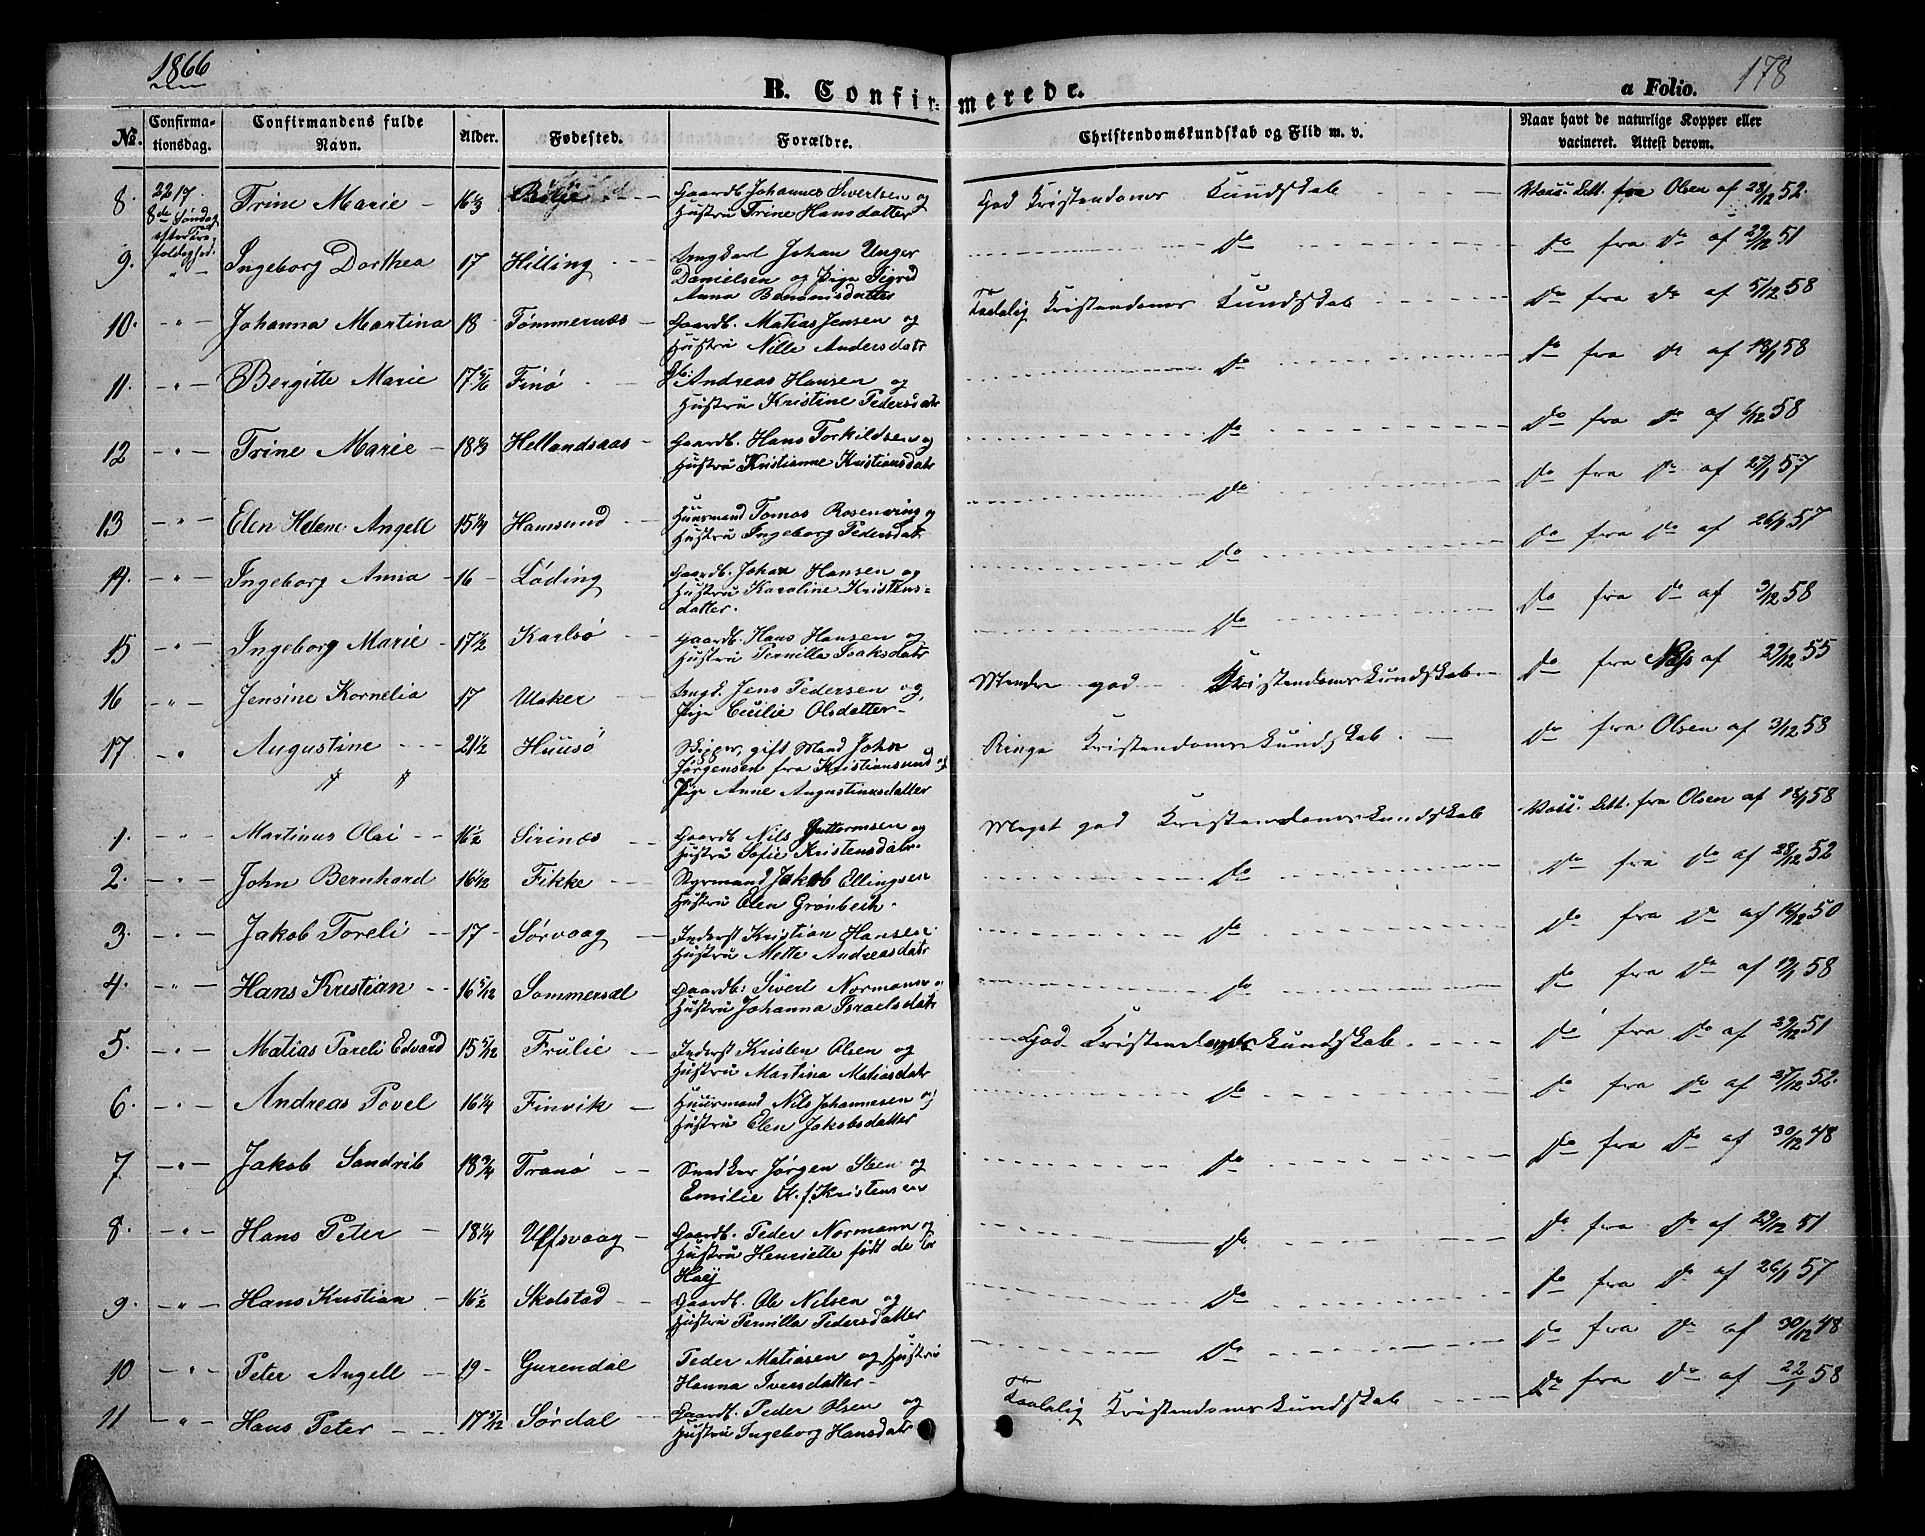 1866
178
B. Confirmerede.
a Folio.
No. Confirmationsdag. Confirmandens fulde Navn. Alder. Fødested. Forældre. Christendomskundskab og Flid m. v. Naar havt de naturlige Kopper eller vacineret. Attest derom.
8. 22/7. 8de Søndag efter Tre- Trine Marie - 16⅓ Gaardb. Johannes Sivertsen og God Kristendoms Kundskab Vacc. Att. fra Olsen af 28/12 52.
Hustru Trine Hansdatter
9. foldighed. Ingeborg Dorthea 17 Hilling Ungkarl Johan Unger do do fra do af 29/12 51
Danielsen og Pige Sigrid
Anna Benonisdatter
10. - " - Johanna Martina 18 Tømmernæs Gaardb. Matias Jensen og Taalelig Kristendoms Kundskab do fra do af 5/12 58
Hustru Nille Andersdatr
11. - " - Bergitte Marie 17 5/6 Finø Gb. Andreas Hansen og do do fra do af 18/1 58
Hustru Kristine Pedersdatr
12 - " - Trine Marie - 18⅓ Hellandsaas Gaardb. Hans Torkildsen og do do fra do af 6/12 58
Hustru Kristianne Kristiansdatr
13 - " - Elen Helene Angell 15¼ Hamsund Huusmand Tomas Rosenving og do do fra do af 27/1 57
Hustru Ingeborg Pedersdatr
14. - " - Ingeborg Anna - 16 - Løding Gaardb. Johan Hansen og do do fra do af 26/1 57
Hustru Karoline Kristens-
datter.
15 - " - Ingeborg Marie 17½ Karlsø Gaardb. Hans Hansen og do do fra do af 3/12 58
Hustru Pernilla Isaksdatr
16 - " - Jensine Kornelia 17 Ulsker Ungk. Jens Pedersen og Mindre god Kristendomskundskab do fra af 29/12 55
Pige Cecilie Olsdatter
17 - " Augustine 21½ Huusø Skipper, gift Mand John Ringe Kristendomskundskab. do fra Olsen af 3/12 58
Jørgensen fra Kristiansund og
Pige Anne Augustinusdatter
1. - " - Martinus Olai 16½ Sirinæs Gaardb. Nils Guttormsen og Meget god Kristendomskundskab Vacc. Att. fra Olsen af 18/1 58
Hustru Sofie Kristensdatr.
2. - " - John Bernhard 16 1/12 Fikke Styrmand Jakob Ellingsen do do fra do af 28/12 52
Hustru Olen Grønbech.
3. - " - Jakob Toreli 17 - Sørvaag Inderst Kristian Hansen do do fra do af 16/12 50
Hustru Mette Andreasdatr
4. - " - Hans Kristian 16 5/12 Sommersæl Gaardb: Sivert Normann do do fra do af 19/1 58
Hustru Johanna Israelsdatr
5. - " - Matias Poreli Edvard 15 5/12 Frulie Inderst Kristen Olsen og God Kristendomskundskab do fra do af 29/12 51
Hustru Martina Matiasdatr
6. - " - Andreas Povel 16¼ Finvik Huusmand Nils Johannesen og do do fra do af 27/12 52.
Hustru Elen Jakobsdatter
7 - " - Jakob Sandrib 18¾ Tranø Snedker Jørgen Steen og do do fra do af 30/12 48
Emilie K. f. Kristensen
8. - " - Hans Peter 18¼ Uffsvaag Gaardb. Peder Normann og do do fra do af 29/12 51
Hustru Henriette født de la
Haij
9. - " - Hans Kristian 16½ Skolstad Gaardb. Ole Nilsen og do do fra do af 26/1 57
Hustru Pernilla Pedersdatter
10 - " - Peter Angell 19 - Gurendal Peder Matiasen og Hustru do do fra do af 30/12 48
Hanna Iversdatter
11 - " - Hans Peter 17 5/12 Sørdal Gaardb. Peder Olsen og Taalelig Kristendomskundskab do fra do af 22/1 58
Hustru Ingeborg Hansdatr